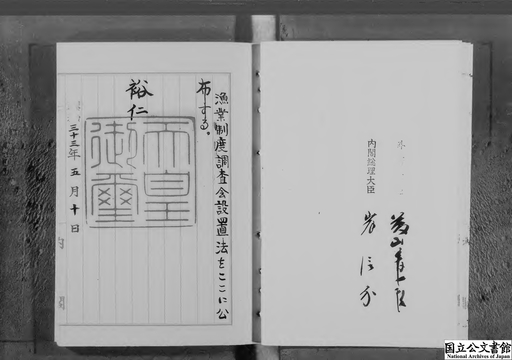 漁業制度調査会設置法をここに公
布する。
裕仁
天皇
御璽
三十三年五月十日
内閣総理大臣
岸信介
国立公文書館
National Archives of Japan